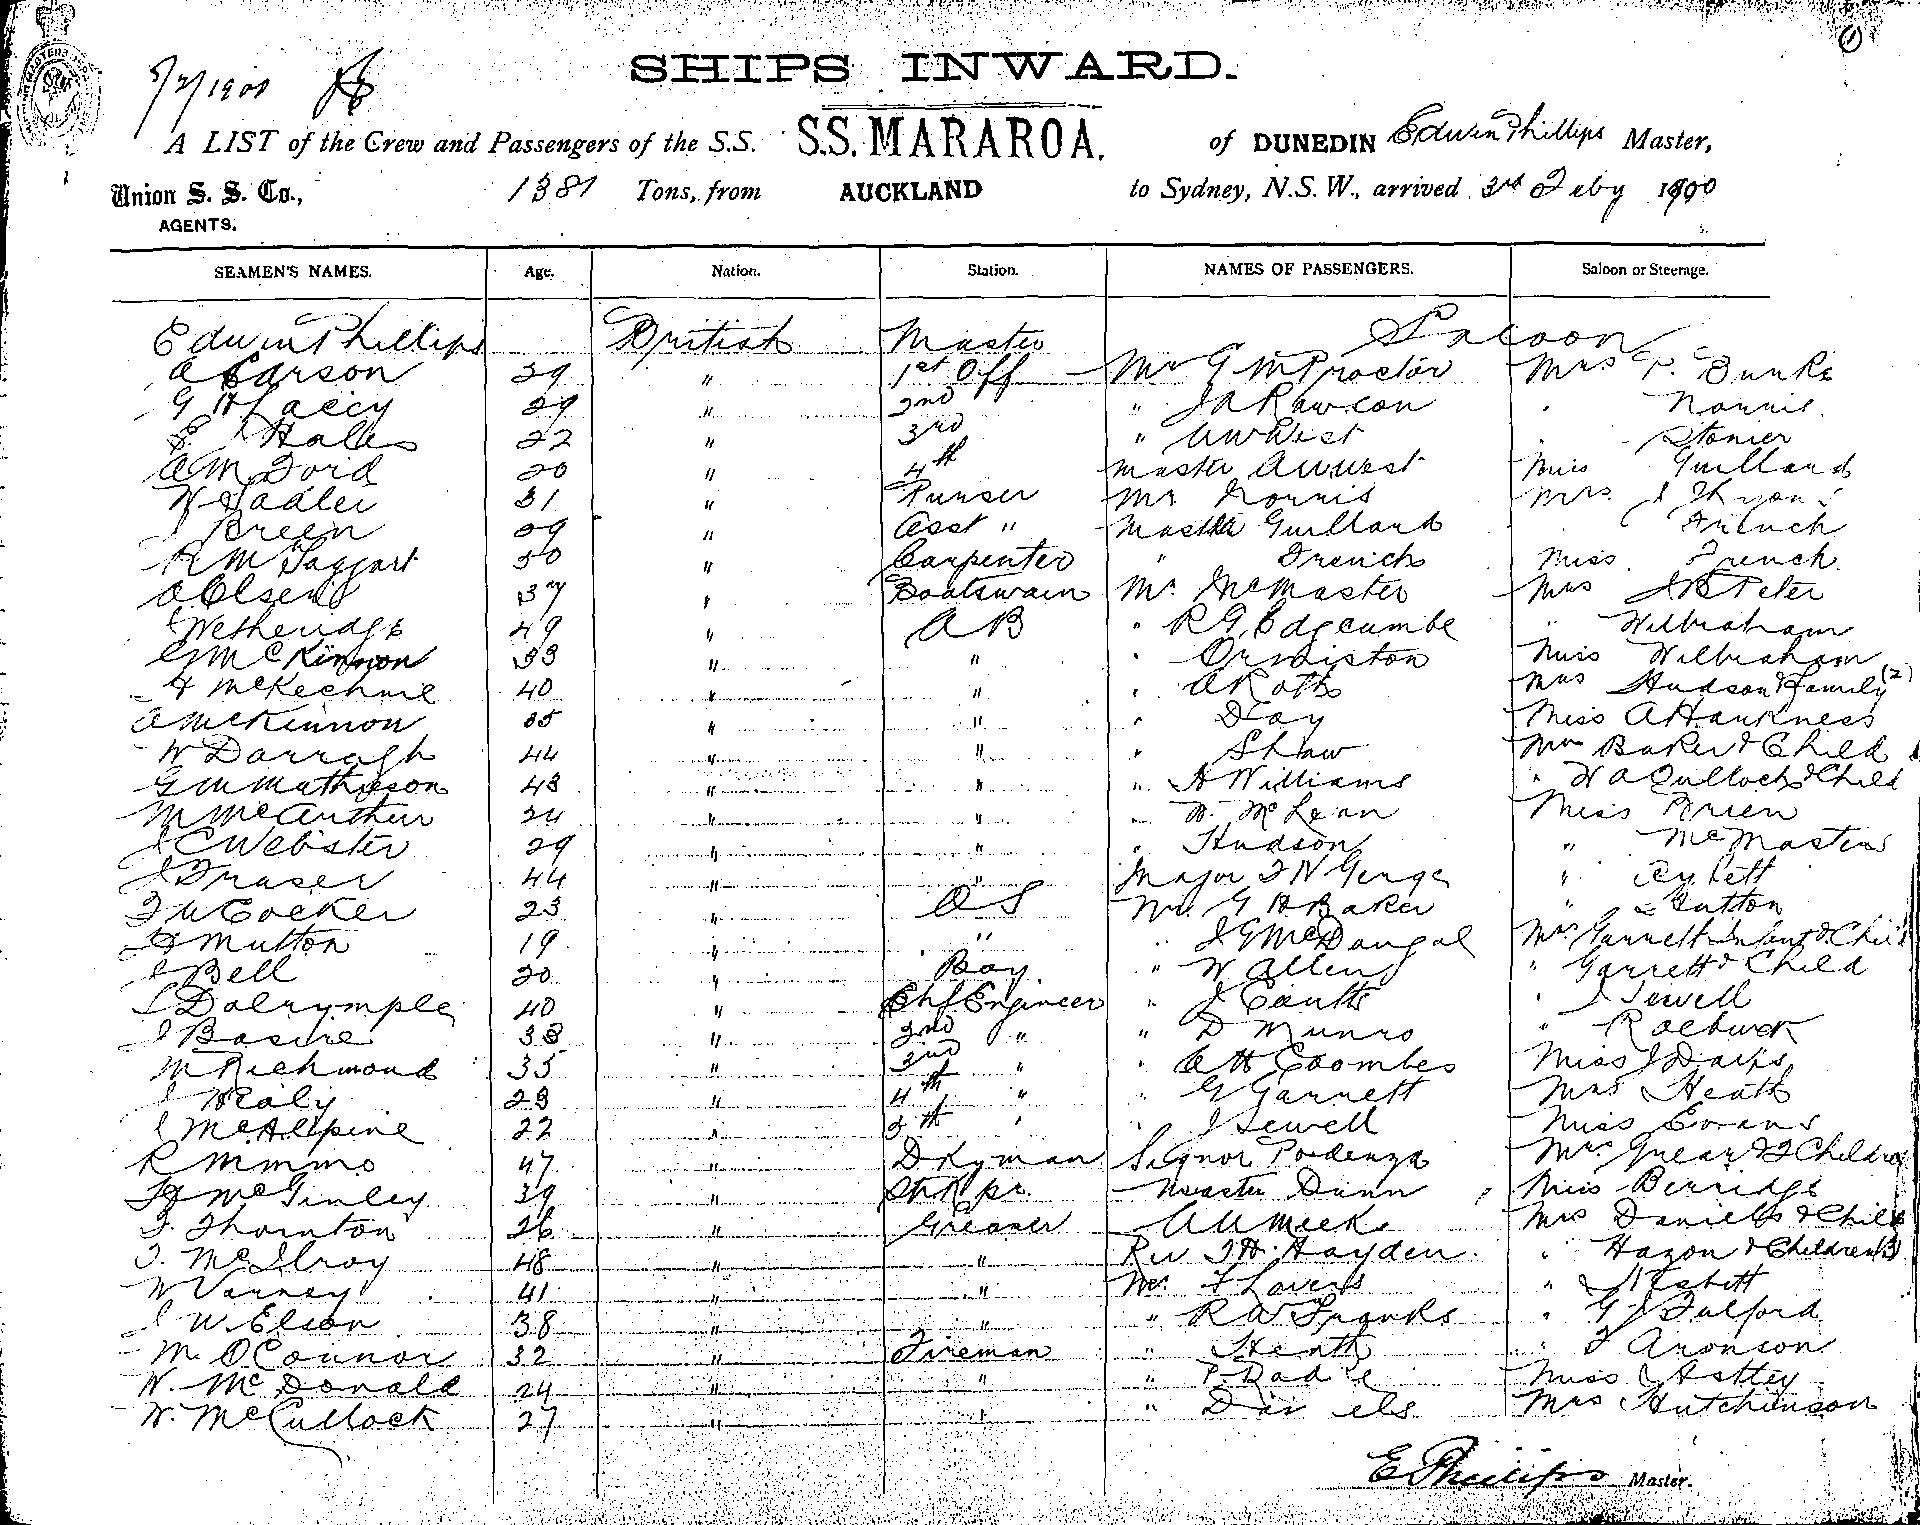 5/2/1900
SHIPS INWARD.
A LIST of the Crew and Passengers of the S.S. S.S. MARAROA. of DUNEDIN Edwin Phillips Master,
Union S. S. Co., 1381 Tons, from AUCKLAND to Sydney, N.S.W., arrived 3rd Feby 1900
AGENTS.
SEAMEN'S NAMES. Age. Nation. Station. NAMES OF PASSENGERS. Saloon or Steerage.
Edwin Phillips British Master Saloon
A Carson 29 " 1st Off Mr G M Proctor Mrs Bunke
G H Laccy 29 " 2nd " J A Rawson " Norris
Hales 22 " 3rd " A W West " Stonier
A M Ford 20 " 4th Master A W West Miss Guilland
W Sadler 31 " Purser Mr Norris Mrs J Thyon
J Breen 29 " Asst " Master Guilland French
R McTaggart 50 " Carpenter " French Miss French
A Olsen 37 " Boatswain Mr McMaster Mrs Peter
Wetheridge 49 " A B " R G Edgcumbe " Wilbraham
McKinnon 33 " " " Ormiston Miss Wilbraham
McKechnie 40 " " " A Roth Mrs Hudson & Family (2)
A McKinnon 35 " " " Day Miss A Harkness
W Darragh 44 " " " Shaw Mrs Baker & Child
G M Mathieson 43 " " " A Williams " W A Culloch & Child
M McArthur 24 " " " W. McLean Miss Brien
J C Webster 29 " " " Hudson " McMaster
J Fraser 44 " " Major George "
Cocker 23 " O S Mr. G H Baker " Hutton
H Mutton 19 " " " J G McDougal Mrs Garrett Infant & Child
J Bell 20 " Boy " W Allen " Garrett & Child
Dalrymple 40 " Chf Engineer " J Coutts " J Sewell
J Basire 38 " 2nd " " D Munro " Roebuck
M Richmond 35 " 3rd " " A H Coombes Miss J Davis
J Healy 23 " 4th " " G Garrett Mrs Heath
J McAlpine 22 " 5th " " J Sewell Miss Evans
R Mimmo 47 " Dkyman Signor Podenza Mrs Grear & 2 Children
McGinley 39 " Strkpr. Master Dunn Miss Berridge
T. Thornton 26 " Greaser A U Meek Mrs Daniells & Child
T. McIlroy 48 " " Rev Hayden " Hazon & Children (3)
W Varney 41 " " Mr. Lovers " Nesbitt
J W Elson 38 " " " R W Franks " G J Fulford
M. O'Connor 32 " Fireman " Heath " F Aronson
W. McDonald 24 " " " Miss Astley
W. McCullock 27 " " " Daniels Mrs Hutchinson
E Phillips Master.